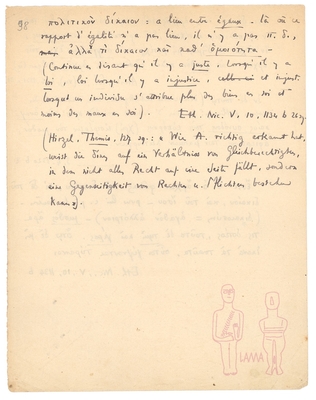 98
πολιτικὸν δίκαιον : a lieu entre égaux. là où ce
rapport d'égalité n'a pas lieu, il n'y a pas π. δ.,
mais ἀλλὰ τὶ δίκαιον καὶ καθ' ὁμοιότητα –
(Continue en disant qu'il y a juste, lorsqu'il y a
loi, loi lorsqu'il y a injustice, et injust.
lorsqu'un individu s'attribue plus des biens en soi et
moins des maux en soi). Eth. Nic. V, 10, 1134 b 26 sq.
(Hirzel, Themis, 127 sq. : « Wie A. richtig erkannt hat,
weist die δίκη auf ein Verhältniss von Gleichberechtigten,
in dem nicht alles Recht auf eine Seite fällt, sondern
eine Gegenseitigkeit von Rechten u. Pflichten bestehen
kann »).
LAMA